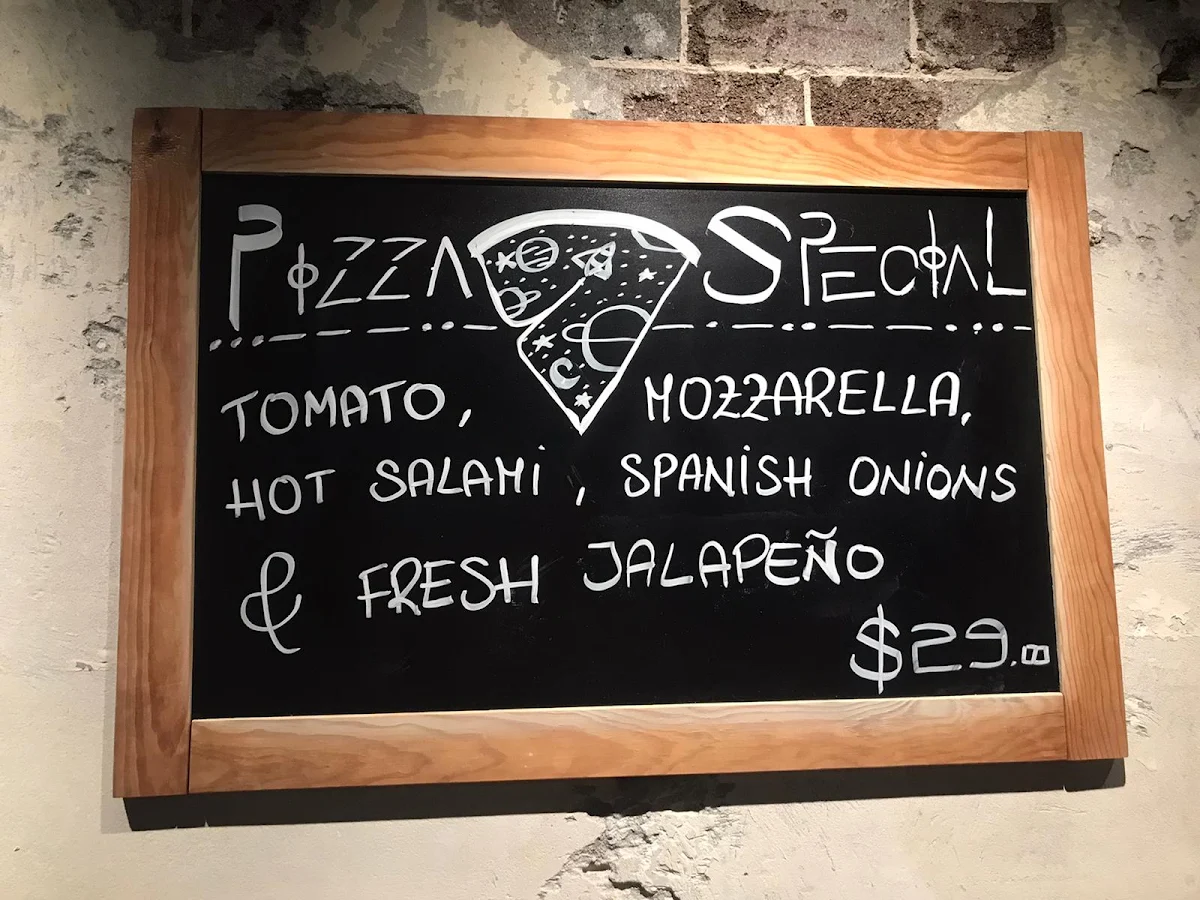 PIZZA SPECIAL
TOMATO, MOZZARELLA,
HOT SALAMI, SPANISH ONIONS
& FRESH JALAPEÑO
$29.00